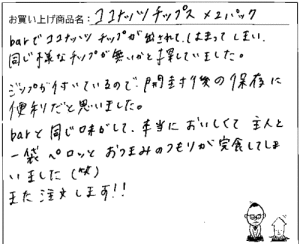 お買い上げ商品名：ココナッツチップス×2パック
barでココナッツチップが出されて、はまってしまい、
同じ様なチップが無いかと探していました。
ジップが付いているので、開封後の保存に
便利だと思いました。
barと同じ味がして、本当においしくて主人と
一袋ペロッとおつまみのつもりが完食してしま
いました(笑)
また注文します!!